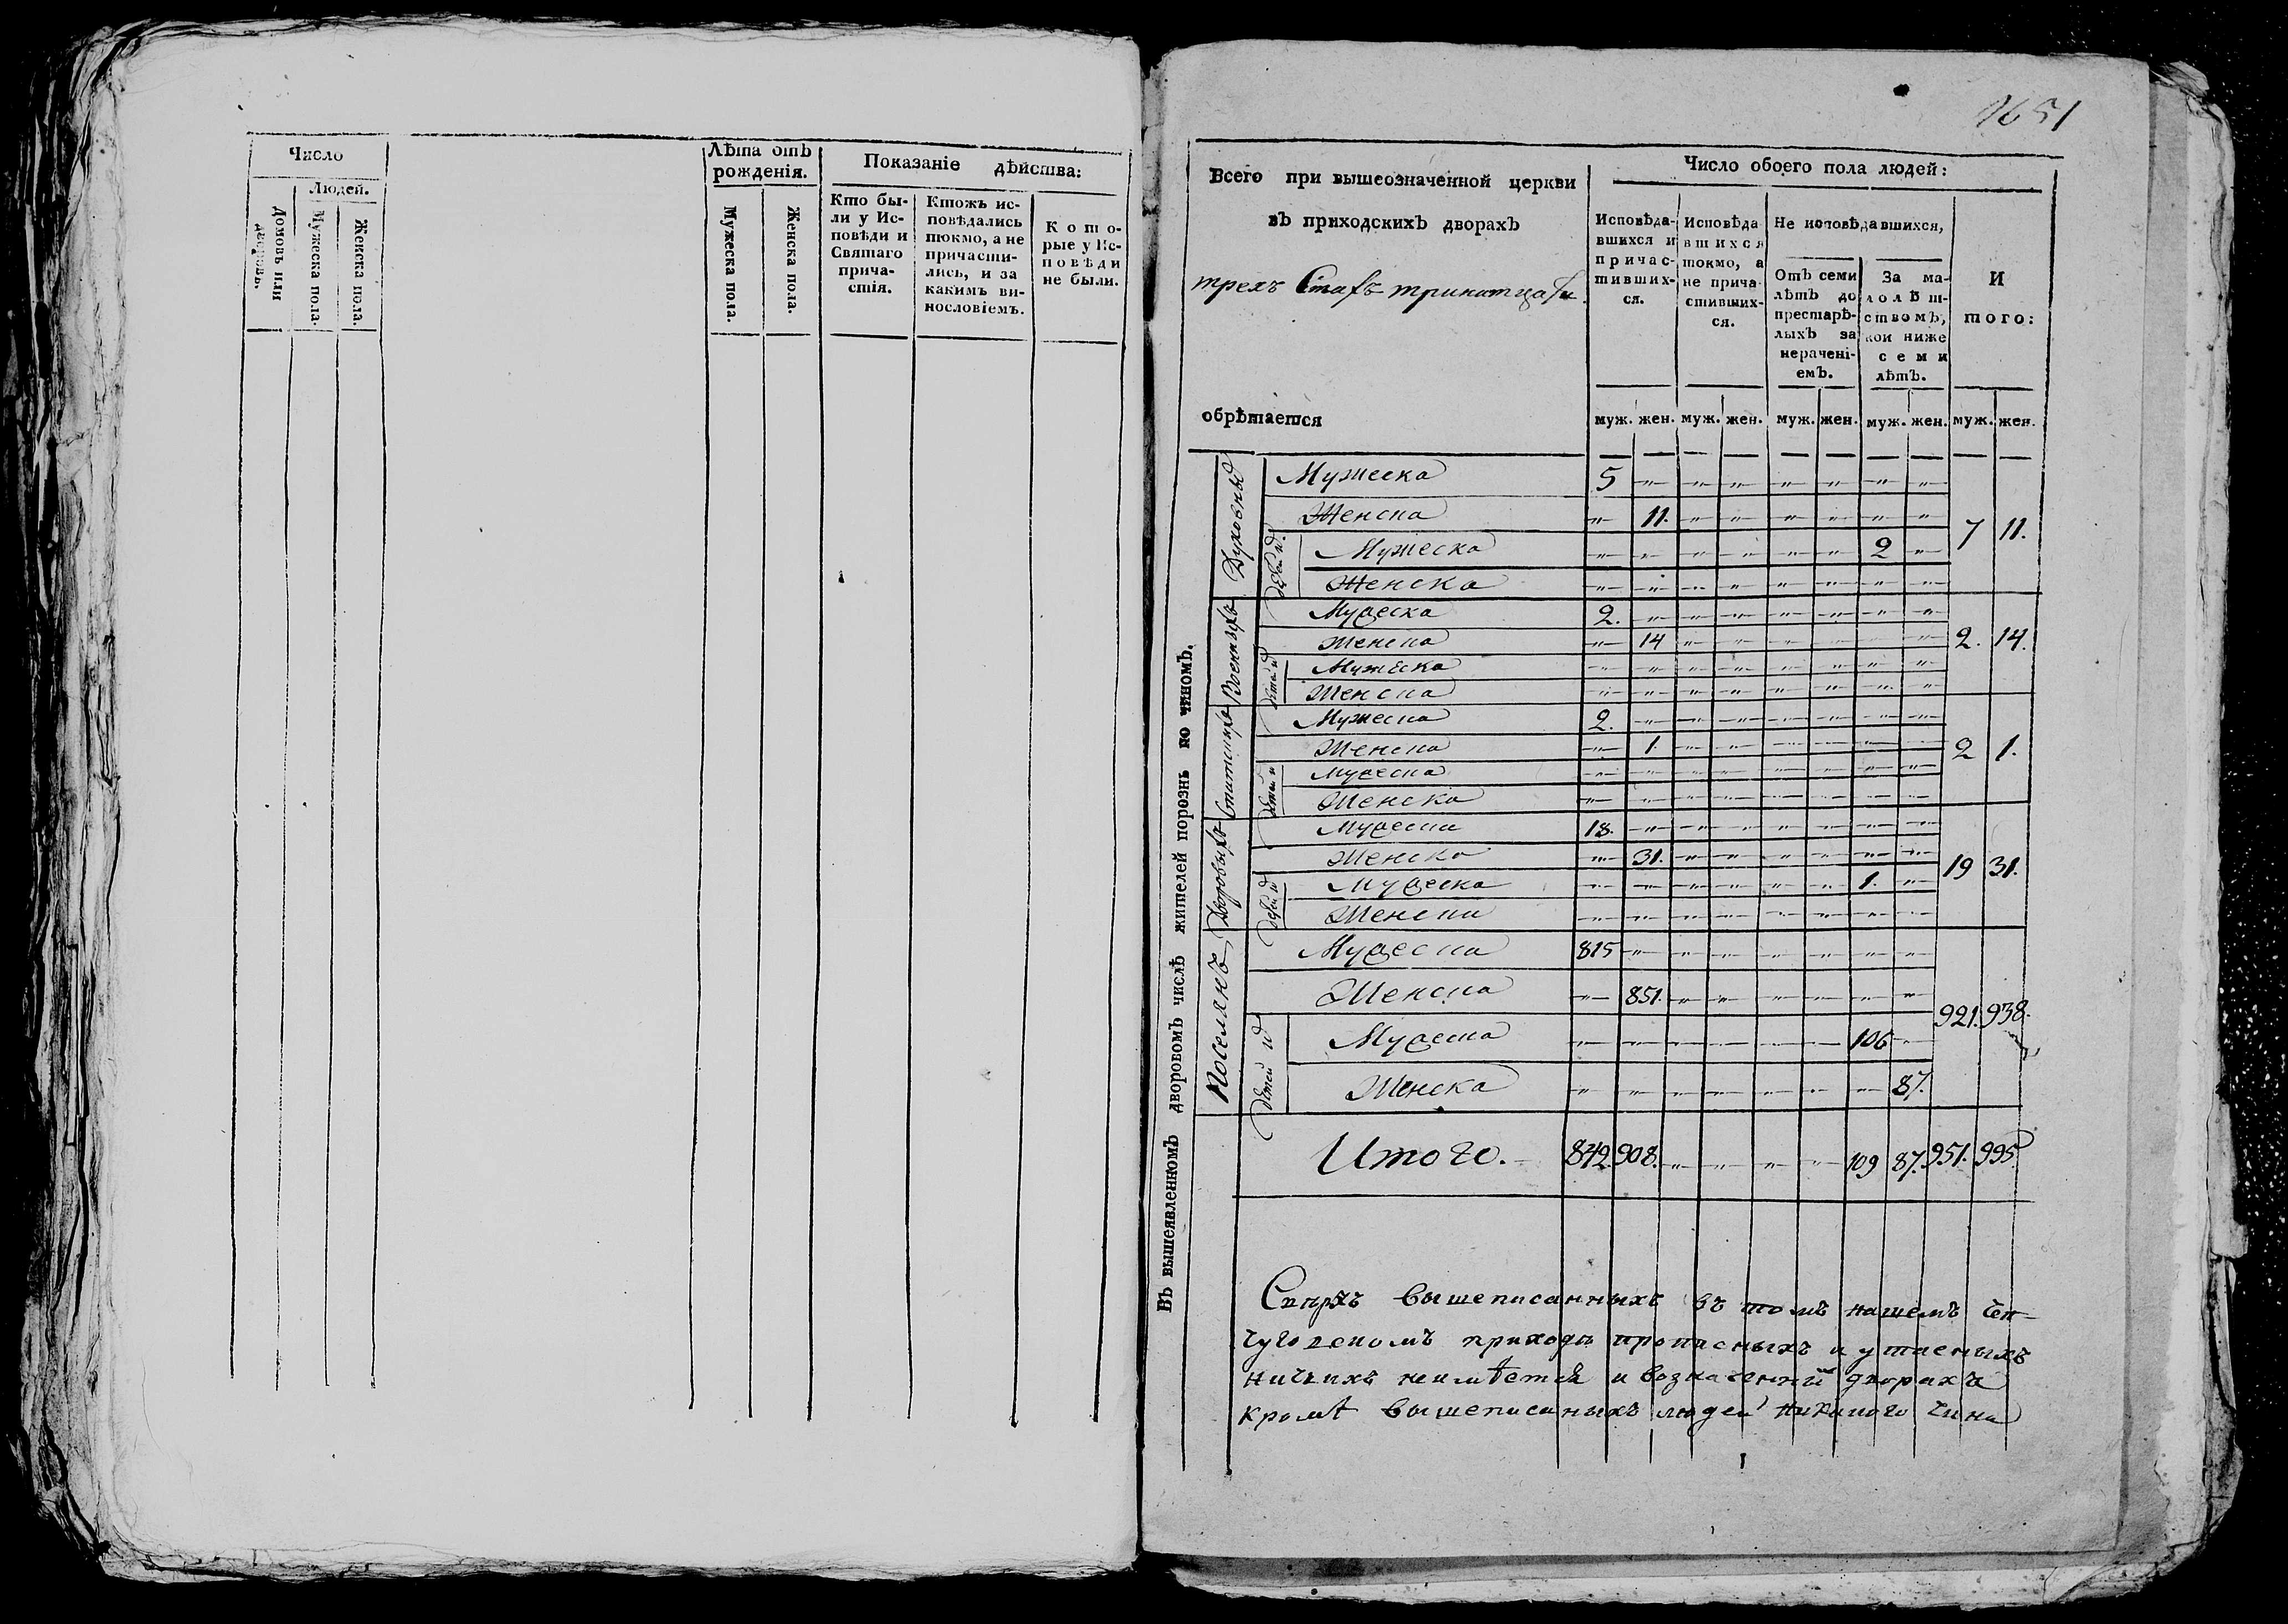 Число
Людей.
Домовъ или дворовъ.
Мужеска пола.
Женска пола.
Лѣта отъ
рожденія.
Мужеска пола.
Женска пола.
Показаніе дѣйства:
Кто бы-
ли у Ис-
повѣди и
Святаго
прича-
стія.
Ктожъ ис-
повѣдались
токмо, а не
причасти-
лись, и за
какимъ ви-
нословіемъ.
Кото-
рые у Ис-
повѣди
не были.
1651
Всего при вышеозначенной церкви
въ приходскихъ дворахъ
трехъ Стахъ тринатцати
обрѣтается
Число обоего пола людей:
Исповѣда-
вшихся и
причас-
тивших-
ся.
Исповѣда
вшихся
токмо, а
не прича
стивших-
ся.
Не исповѣдавшихся,
Отъ семи
лѣтъ до
престарѣ-
лыхъ за
нерачені-
емъ.
За ма-
лолѣт-
ствомъ,
кои ниже
семи
лѣтъ.
И
того:
муж. жен. муж. жен. муж. жен. муж. жен. муж. жен.
Въ вышеявленномъ дворовомъ числѣ жителей порознь по чиномъ.
Духовны
Мужеска 5 „ „ „ „ „ „ „
Женска „ 11. „ „ „ „ „ „
детей
Мужеска „ „ „ „ „ „ 2 „
Женска „ „ „ „ „ „ „ „
7 11.
Военныхъ
Мужеска 2. „ „ „ „ „ „ „
Женска „ 14 „ „ „ „ „ „
детей
Мужеска „ „ „ „ „ „ „ „
Женска „ „ „ „ „ „ „ „
2. 14.
Мужеска 2. „ „ „ „ „ „ „
Женска „ 1. „ „ „ „ „ „
детей
Мужеска „ „ „ „ „ „ „ „
Женска „ „ „ „ „ „ „ „
2 1.
Дворовыхъ
Мужеска 18. „ „ „ „ „ „ „
Женска „ 31. „ „ „ „ „ „
детей
Мужеска „ „ „ „ „ „ 1. „
Женска „ „ „ „ „ „ „ „
19 31.
Поселянъ
Мужеска 815 „ „ „ „ „ „ „
Женска „ 851. „ „ „ „ „ „
детей
Мужеска „ „ „ „ „ „ 106 „
Женска „ „ „ „ „ „ „ 87.
921. 938.
Итого. 842. 908. „ „ „ „ 109 87. 951. 995
Сверхъ вышеписанныхъ въ томъ нашемъ
приходѣ прописныхъ и утаеныхъ
ничьихъ неимѣется и возначенный дворахъ
кромѣ вышеписаныхъ людей никакого чина